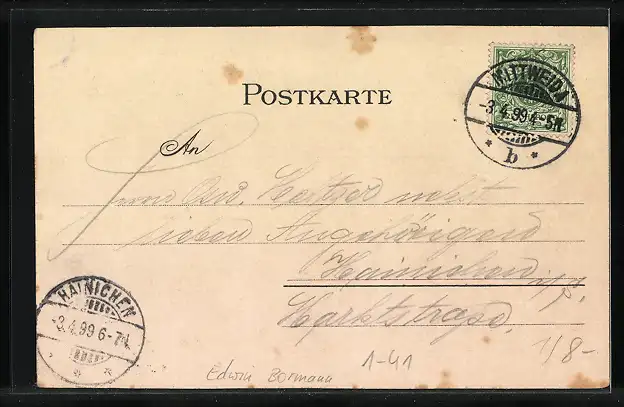 POSTKARTE
MITTWEIDA
-3.4.99 4-5N
* b *
An
Herrn
nebst
lieben Angehörigen
Hainichen i/S.
Marktstrasse,
HAINICHEN
-3.4.99 6-7N.
* *
Edwin Bormann
1-41
1/8-